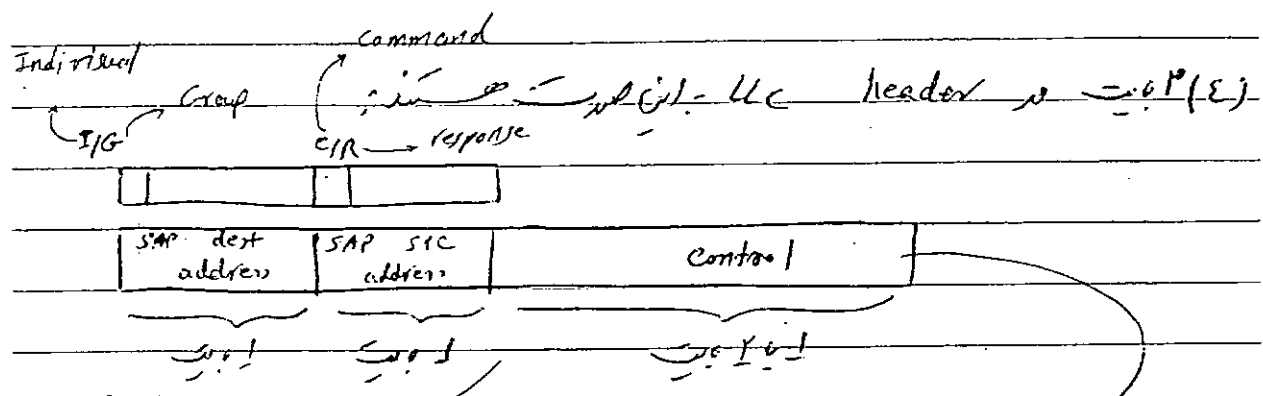 command
Individual
Group
۴(٤) بایت در header LLC باین صورت هستند:
I/G
C/R → response
SAP dest address
SAP src address
control
۱ بایت
۱ بایت
۱ یا ۲ بایت